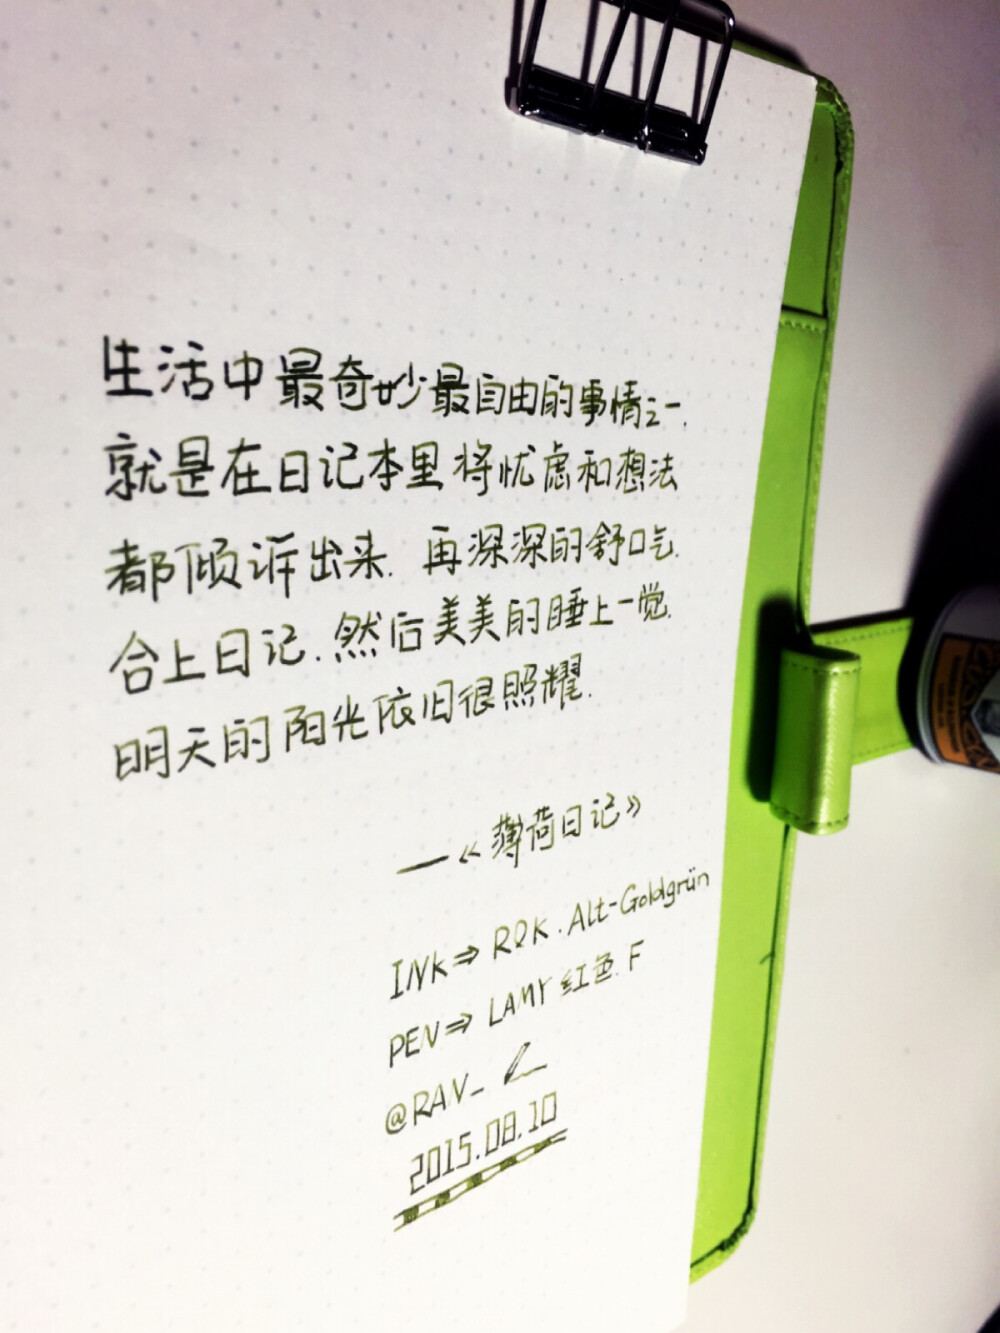 生活中最奇妙最自由的事情之一.
就是在日记本里将忧虑和想法
都倾诉出来.再深深的舒口气.
合上日记.然后美美的睡上一觉.
明天的阳光依旧很照耀.
—《薄荷日记》
INK⇒ R&K.Alt-Goldgrün
PEN⇒ LAMY 红色.F
@RAN_
2015.08.10